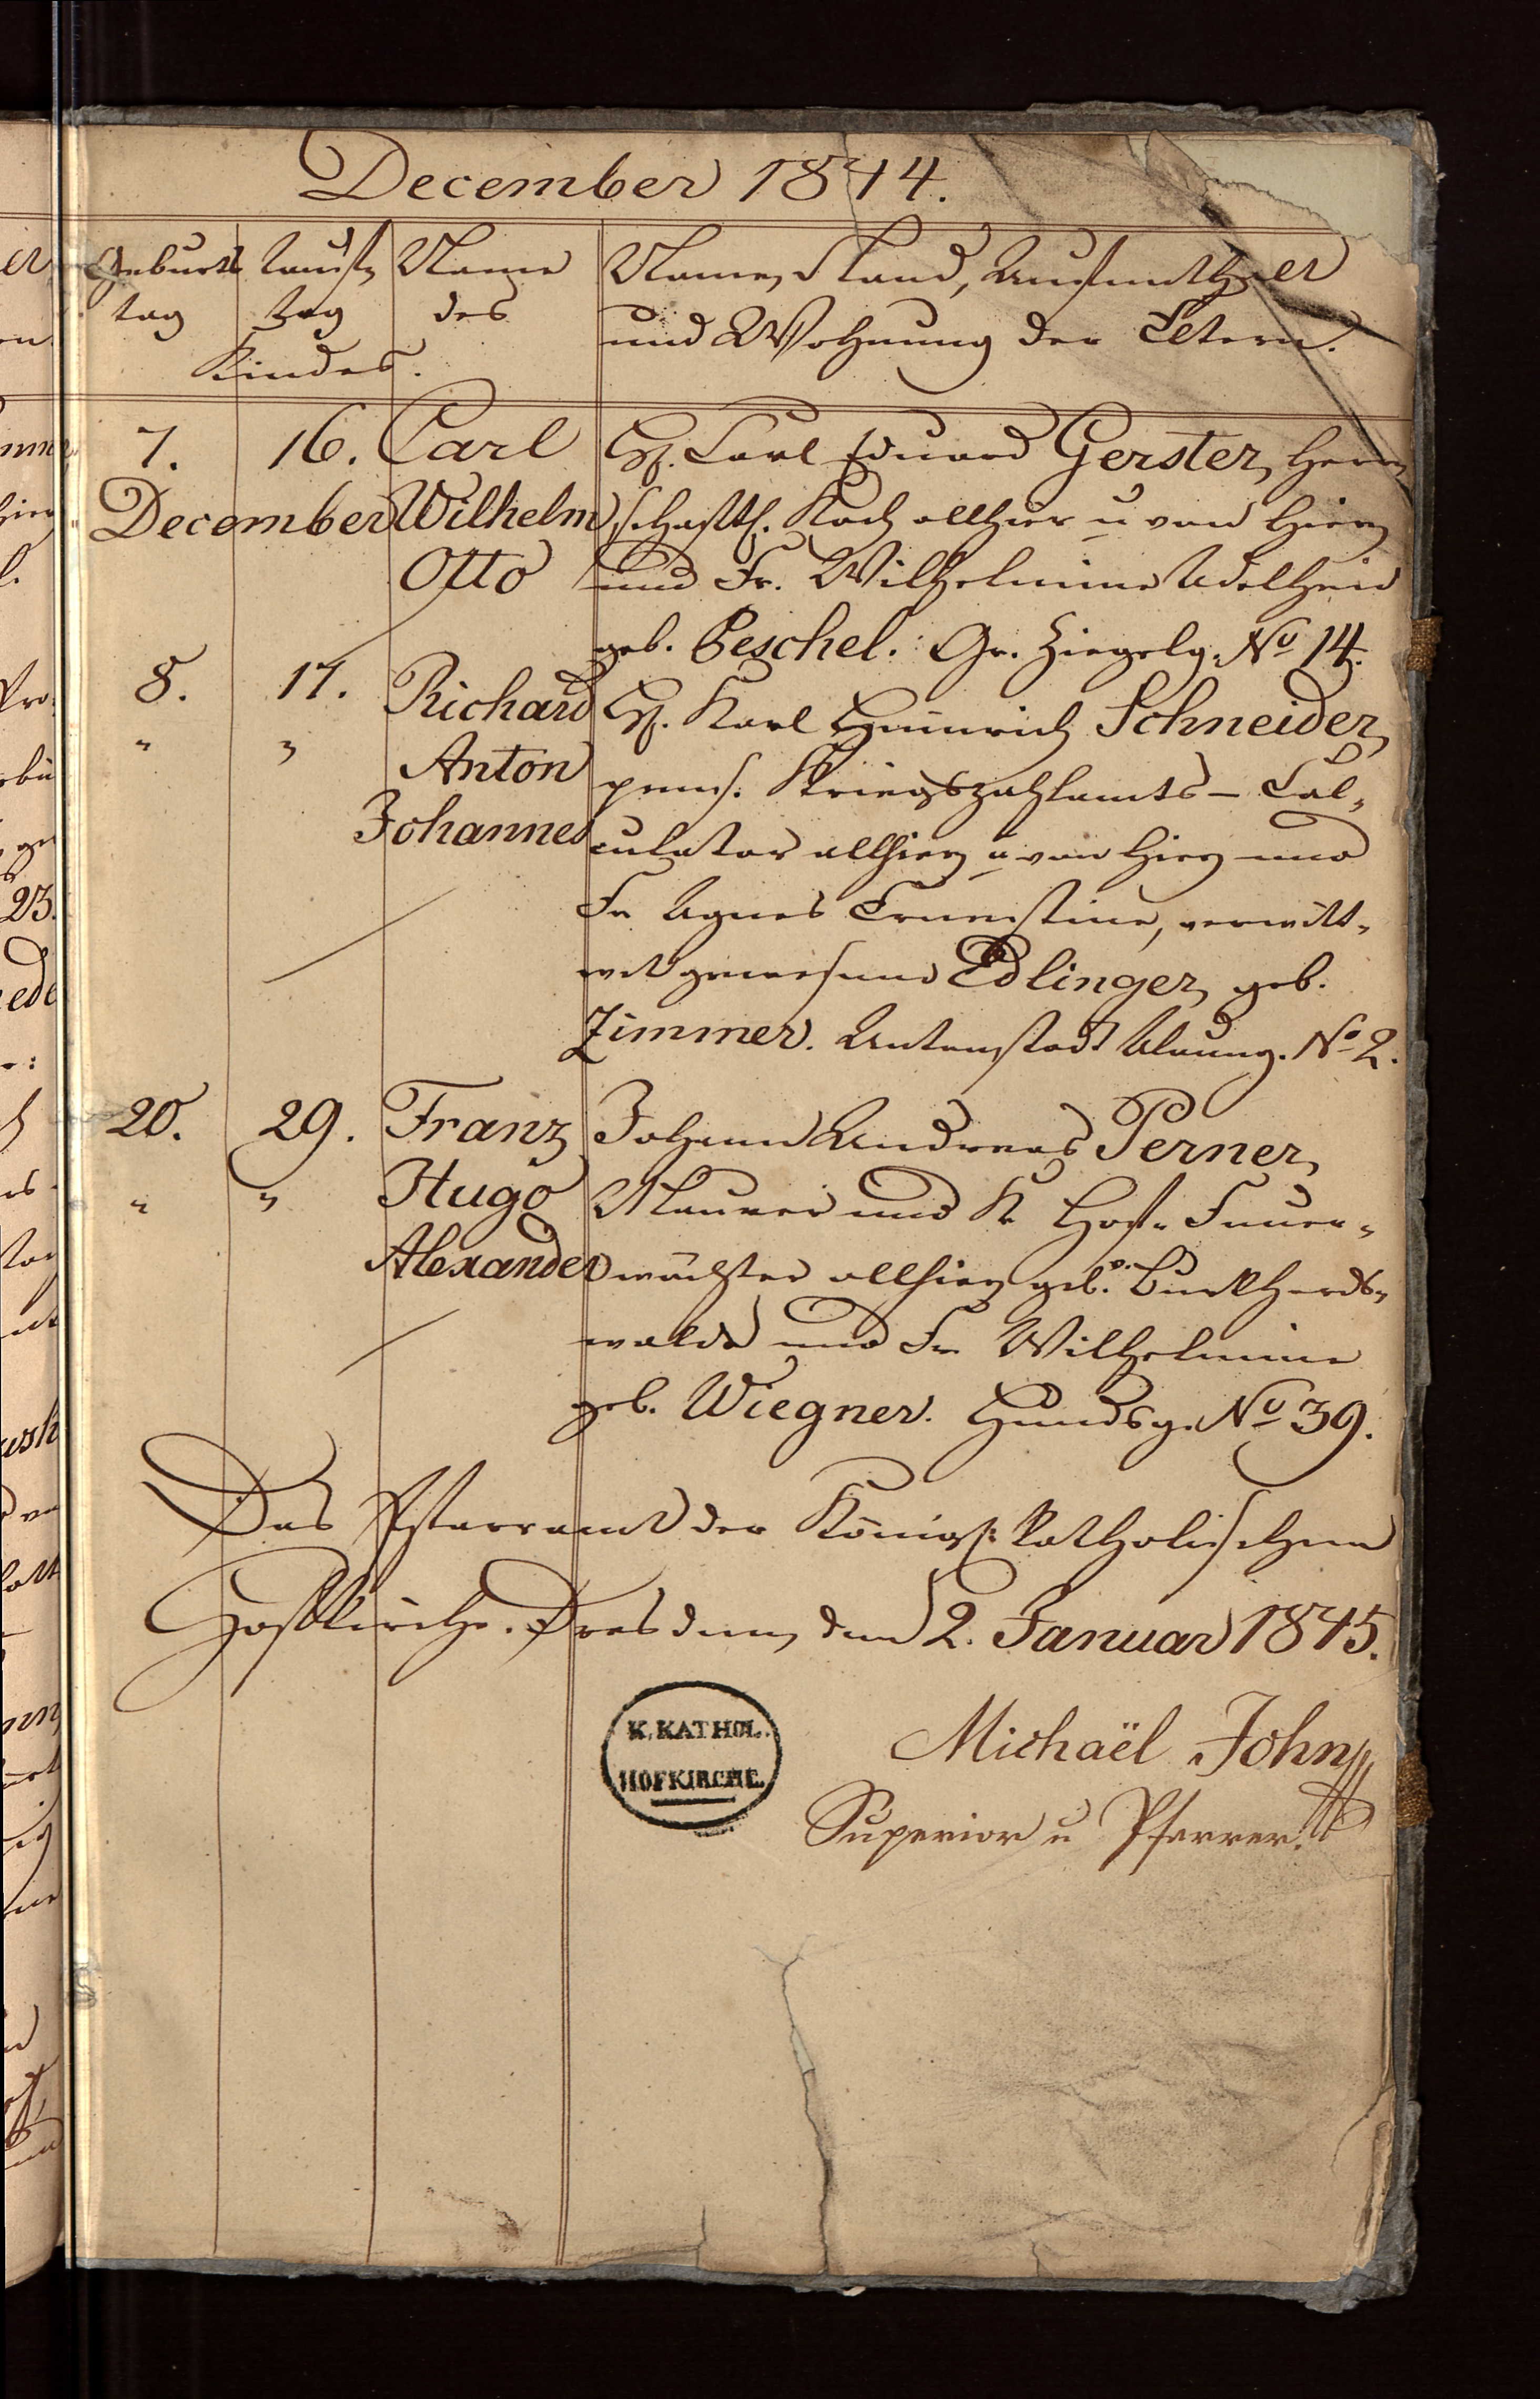 December 1844.
Geburts Tauf= Name Name, Stand, Aufenthalt
tag tag des und Wohnung der Eltern.
Kindes.
7. 16. Carl H. Carl Eduard Gerster, herr=
December Wilhelm schaftl. Koch allhier u von hier
Otto und Fr. Wilhelmine Adelheid
geb. Peschel. Gr. Ziegelg. No 14.
8. 17. Richard H. Karl Heinrich Schneider,
" " Anton pens. Kriegszahlamts-Cal=
Johannes culator allhier u von hier und
Fr. Agnes Ernestine, verwitt=
wet gewesene Edlinger, geb.
Zimmer. Antonstadt Alaung. No 2.
20. 29. Franz Johann Andreas Perner,
" " Hugo Maurer und K. Hof=Feuer=
Alexander wächter allhier, geb. v. Burkhards=
walde und Fr. Wilhelmine
geb. Wiegner. Hundsg. No 39.
Das Pfarramt der Königl. katholischen
Hofkirche. Dresden, den 2. Januar 1845.
K. KATHOL.
HOFKIRCHE.
Michaël John
Superior u Pfarrer.